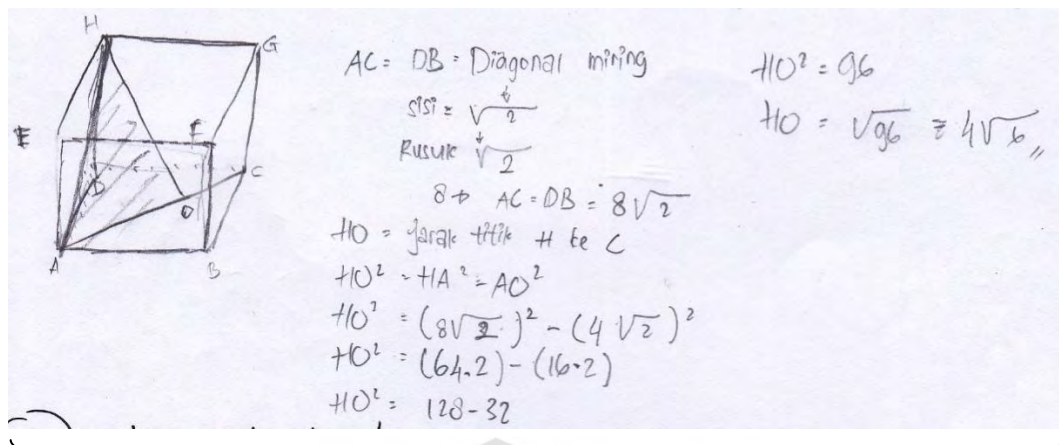 H
G
E
F
D
C
O
A
B
AC = DB = Diagonal miring
sisi = √2
Rusuk √2
8 → AC = DB = 8√2
HO = jarak titik H ke C
HO² = HA² = AO²
HO² = (8√2)² - (4√2)²
HO² = (64.2) - (16.2)
HO² = 128 - 32
HO² = 96
HO = √96 = 4√6 ,,